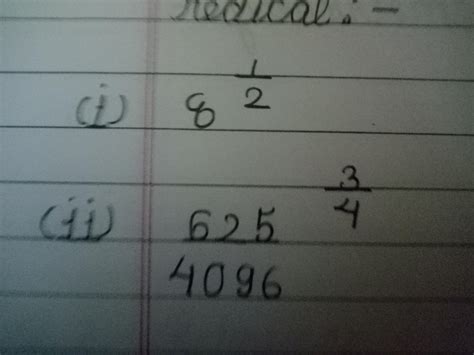 Redical : -
(i) 8^(1/2)
(ii) (625/4096)^(3/4)